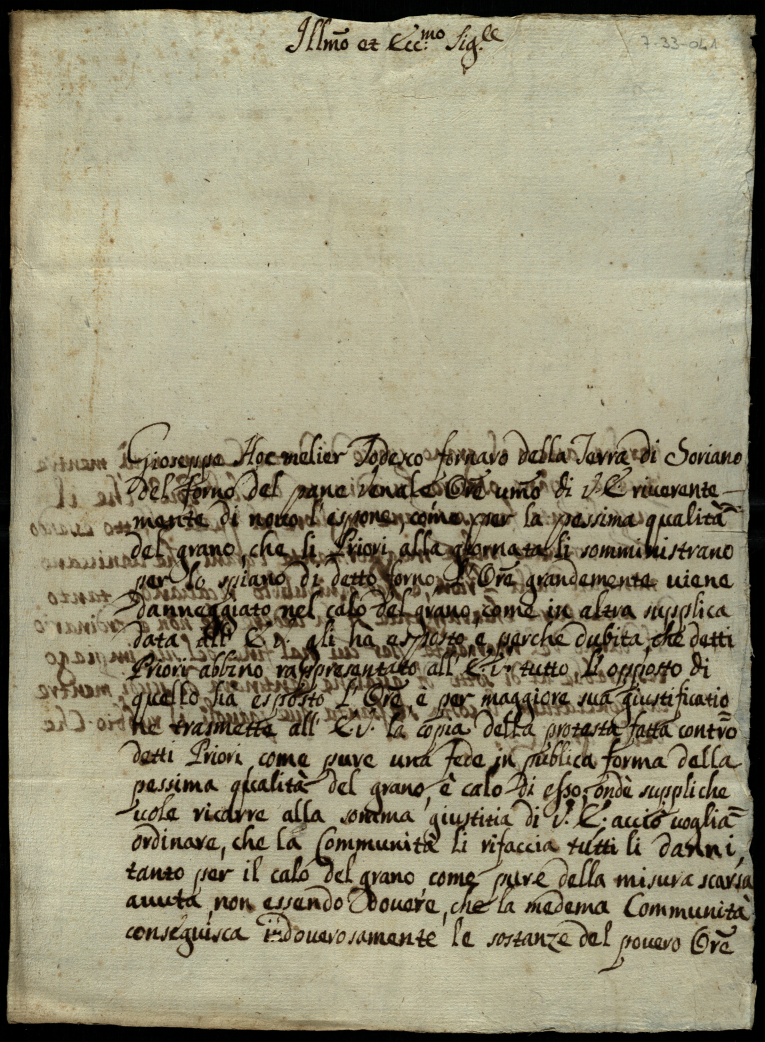 Illmõ et Ecc.mo Sig.re
7-33-041
Gioseppe Hoemelier Todexo fornaro della Terra di Soriano
del forno del pane venale Orẽ umõ di V.E. riverente-
mente di novo l'espone, come per la pessima qualità
del grano, che li Priori alla giornata li somministrano
per lo spiano di detto forno l'Orẽ grandemente viene
danneggiato nel calo del grano, come in altra supplica
data all'E.V. gli hà esposto e perche dubita, che detti
Priori abbino rappresentato all'E.V. tutto l'opposto di
quello hà esposto l'Orẽ, è per maggiore sua giustificatio
ne trasmette all'E.V. la copia della protesta fatta contrõ
detti Priori, come pure una fede in publica forma della
pessima qualità del grano, è calo di esso, onde suppliche
vole ricorre alla somma giustitia di V.E. acciò voglia
ordinare, che la Communità li rifaccia tutti li danni,
tanto per il calo del grano, come pure della misura scarsa
avuta, non essendo dovere, che la medema Communità
conseguisca indoverosamente le sostanze del povero Orẽ